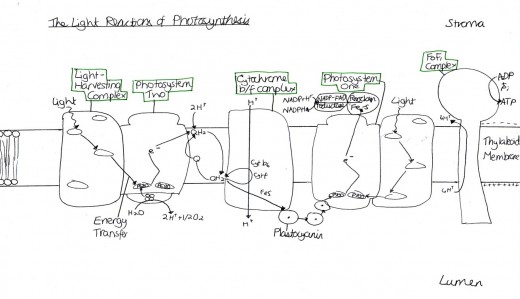 The Light Reactions of Photosynthesis
Stroma
Light-
Harvesting
Complex
Photosystem
Two
Cytochrome
b/f complex
Photosystem
One
FoF1
Complex
Light
2H+
H+
NADP+H+
NADPH
Fe-S
Light
ADP
Pi
ATP
4H+
Thylakoid
Membrane
QH2
e-
Cyt b6
Cyt f
QH2
FeS
e-
4H+
H2O
2H+ + 1/2O2
H+
Energy
Transfer
Plastocyanin
Lumen